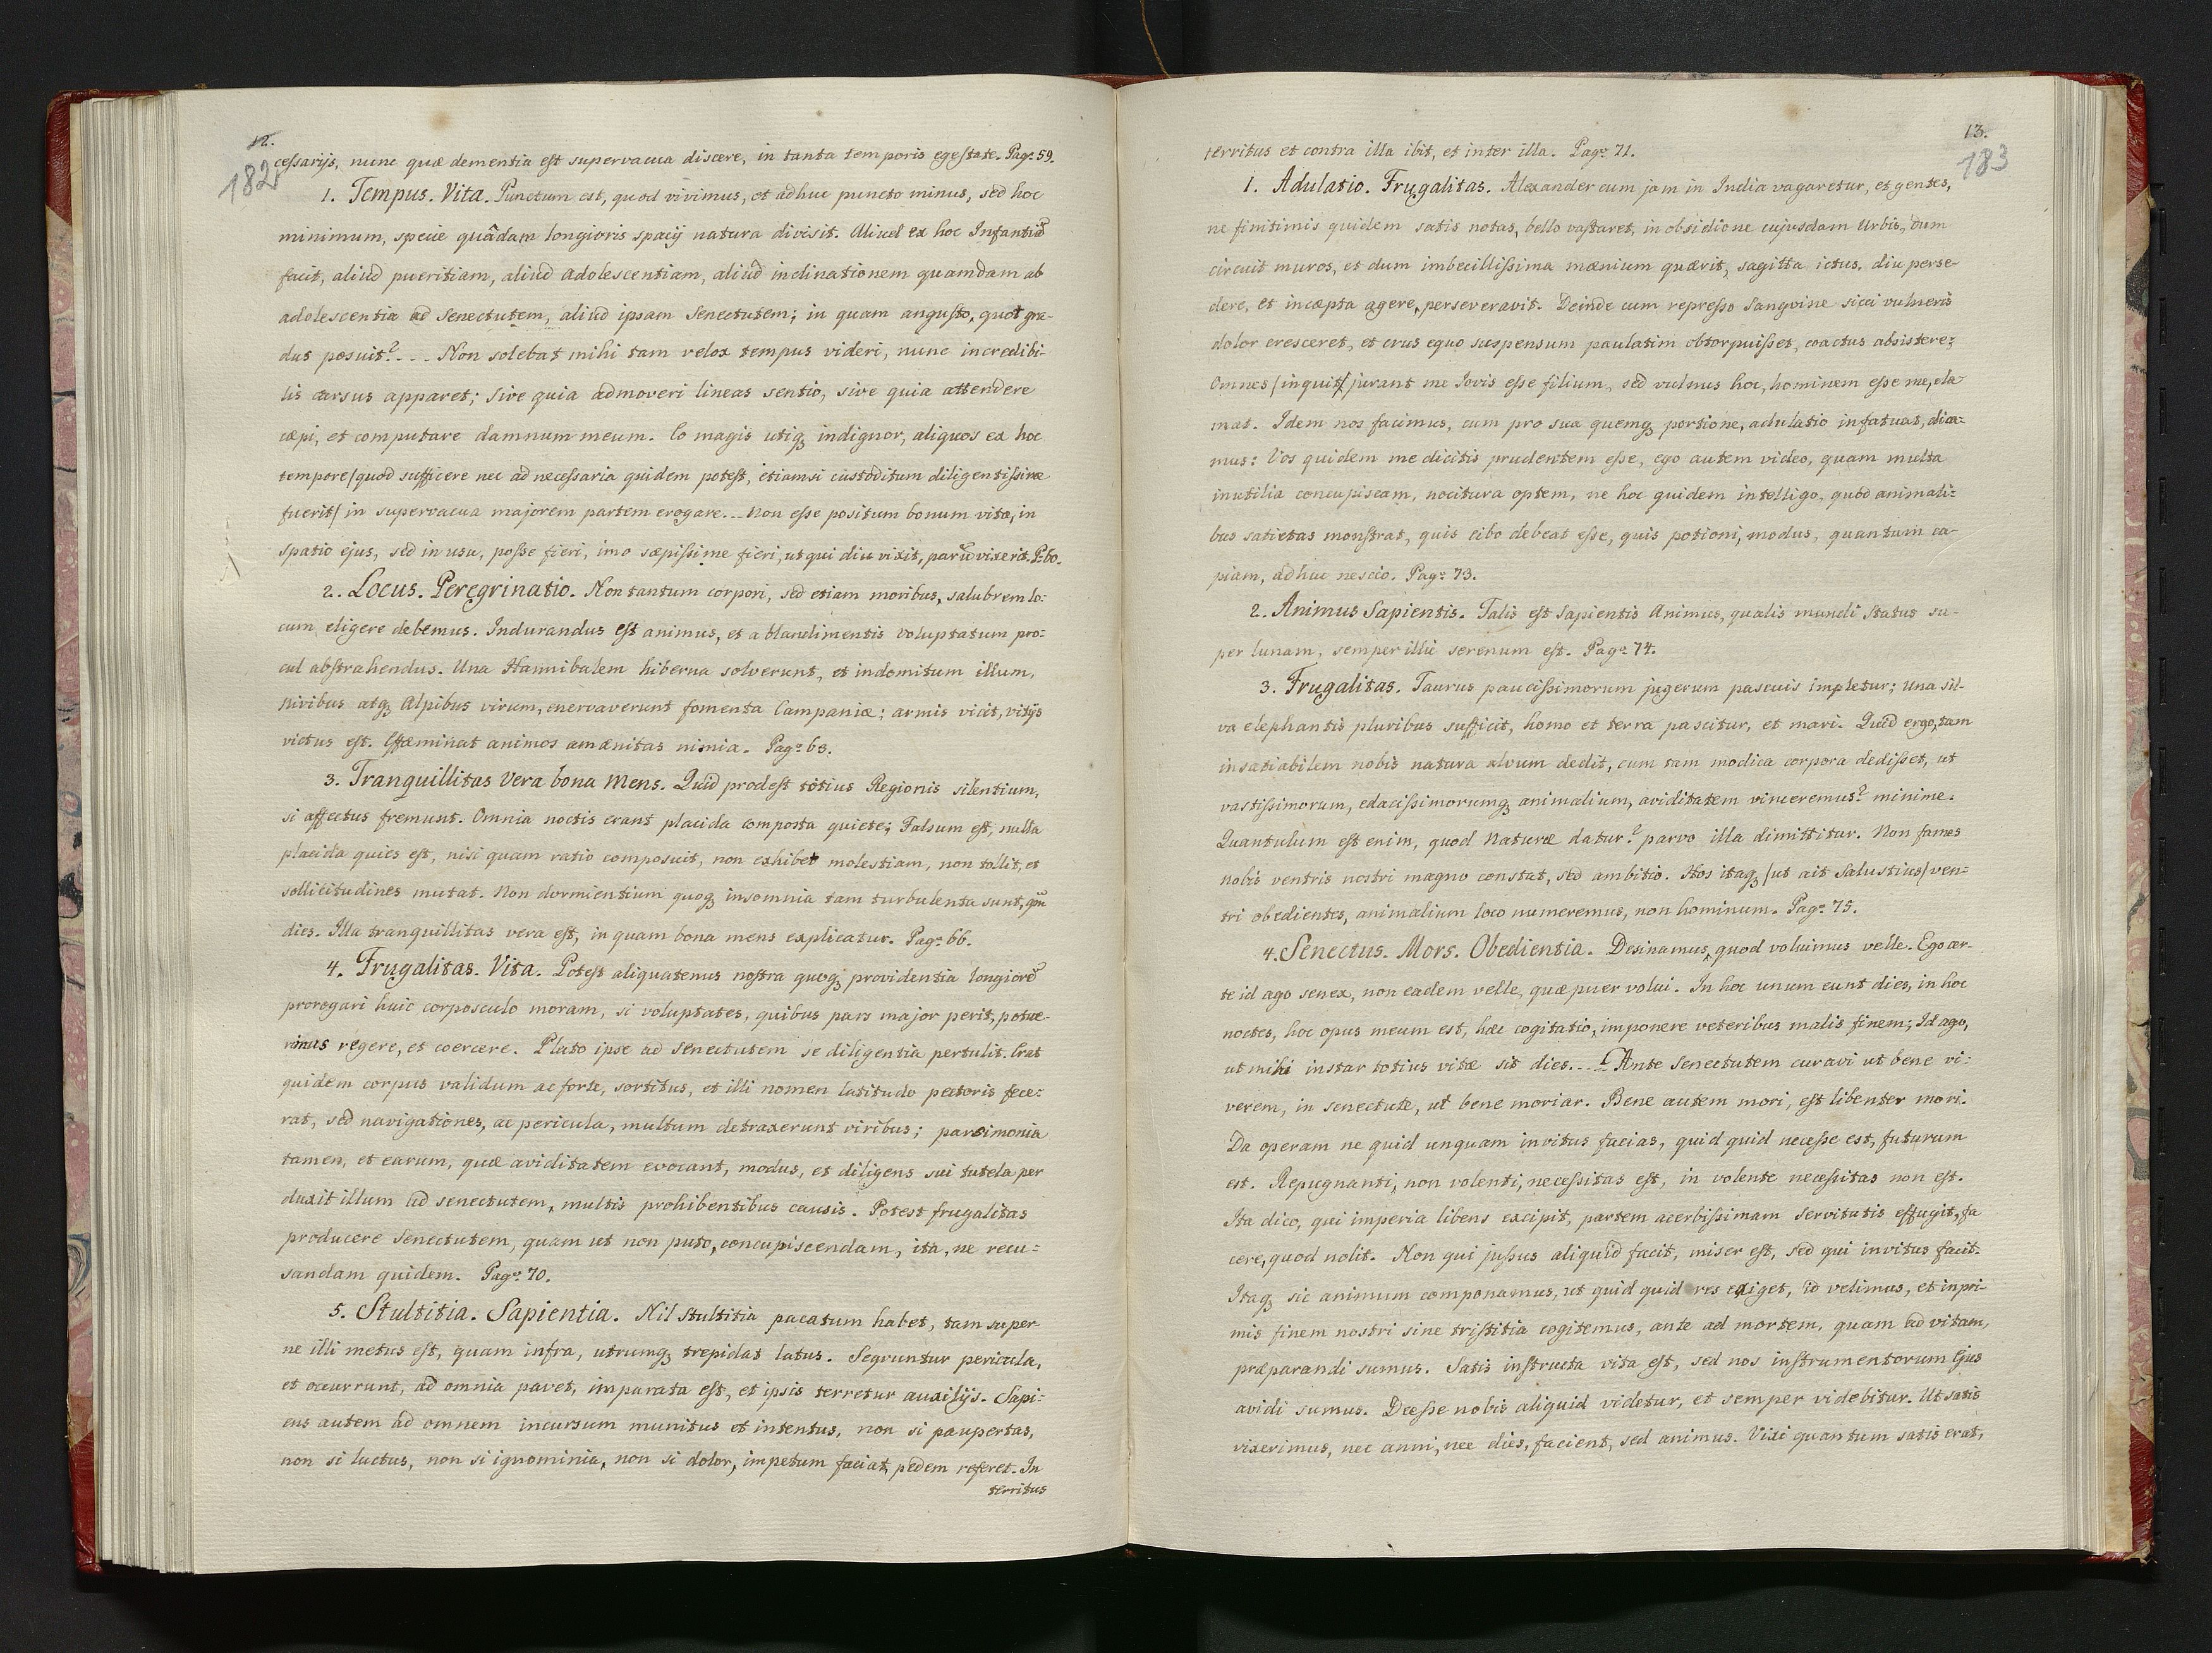 12.
182
cessarijs, nunc quæ dementia est supervacua discere, in tanta temporis egestate. Pag: 59.
1. Tempus. Vita. Punctum est, quod vivimus, et adhuc puncto minus, sed hoc
minimum, specie quâdam longioris spacij natura divisit. Aliud ex hoc Infantiũ
facit, aliud pueritiam, aliud adolescentiam, aliud inclinationem quamdam ab
adolescentia ad Senectutem, aliud ipsam Senectutem; in quam angusto, quot gra-
dus posuit? - - - Non solebat mihi tam velox tempus videri, nunc incredibi-
lis cursus apparet; sive quia admoveri lineas sentio, sive quia attendere
cæpi, et computare damnum meum. Eo magis utiq₃ indignor, aliquos ex hoc
tempore/quod sufficere nec ad necessaria quidem potest, etiamsi custoditum diligentissime
fuerit/ in supervacua majorem partem erogare. - - Non esse positum bonum vitæ, in
spatio ejus, sed in usu, posse fieri, imo sæpissime fieri, ut qui diu vixit, parũ vixerit. P: 60.
2. Locus. Peregrinatio. Non tantum corpori, sed etiam moribus, salubrem lo:
cum eligere debemus. Indurandus est animus, et a blandimentis voluptatum pro:
cul abstrahendus. Una Hannibalem hiberna solverunt, et indomitum illum,
niribus atq₃ Alpibus virum, enervaverunt fomenta Campaniæ; armis vicit, vitijs
victus est. Effæminat animos amænitas nimia. Pag: 63.
3. Tranquillitas Vera bona Mens. Quid prodest totius Regionis silentium,
si affectus fremunt. Omnia noctis erant placida composta quiete; Falsum est, nulla
placida quies est, nisi quam ratio composuit, non exhibet molestiam, non tollit, et
sollicitudines mutat. Non dormientium quoq₃ insomnia tam turbulenta sunt, qũ
dies. Illa tranquillitas vera est, in quam bona mens explicatur. Pag: 66.
4. Frugalitas. Vita. Potest aliquatenus nostra quoq₃ providentia longiorẽ
prorogari huic corposculo moram, si voluptates, quibus pars major perit, potue-
rimus regere, et coercere. Plato ipse ad Senectutem se diligentia pertulit. Erat
quidem corpus validum ac forte, sortitus, et illi nomen latitudo pectoris fece:
rat, sed navigationes, ac pericula, multum detraxerunt viribus; parsimonia
tamen, et earum, quæ aviditatem evocant, modus, et diligens sui tutela per
duxit illum ad senectutem, multis prohibentibus causis. Potest frugalitas
producere Senectutem, quam ut non puto, concupiscendam, ita, ne recu:
sandam quidem. Pag: 70.
5. Stultitia. Sapientia. Nil Stultitia pacatum habet, tam super
ne illi metus est, quam infra, utrumq₃ trepidat latus. Seqvuntur pericula,
et occurrunt, ad omnia pavet, imparata est, et ipsis terretur auxilijs. Sapi:
ens autem ad omnem incursum munitus et intentus, non si paupertas,
non si luctus, non si ignominia, non si dolor, impetum faciat, pedem referet. In
territus
13.
183
territus et contra illa ibit, et inter illa. Pag: 71.
1. Adulatio. Frugalitas. Alexander cum jam in India vagaretur, et gentes,
ne finitimis quidem satis notas, bello vastaret, in obsidione cujusdam Urbis, dum
circuit muros, et dum imbecillissima mænium quærit, sagitta ictus, diu perse-
dere, et incæpta agere, perseveravit. Deinde cum represso Sangvine sicci vulneris
dolor cresceret, et crus equo suspensum paulatim obtorpuisset, coactus absistere;
Omnes /inquit/ jurant me Jovis esse filium, sed vulnus hoc, hominem esse me, cla
mat. Idem nos facimus, cum pro sua quemq₃ portione, adulatio infatuat, dica:
mus: Vos quidem me dicitis prudentem esse, ego autem video, quam multa
inutilia concupiscam, nocitura optem, ne hoc quidem intelligo, quod animali:
bus satietas monstrat, quis cibo debeat esse, quis potioni, modus, quantum ca-
piam, adhuc nescio. Pag: 73.
2. Animus Sapientis. Talis est Sapientis Animus, qualis mundi Status su-
per lunam, semper illic serenum est. Pag: 74.
3. Frugalitas. Taurus paucissimorum jugerum pascuis impletur; una sil-
va elephantis pluribus sufficit, homo et terra pascitur, et mari. Quid ergo, tam
insatiabilem nobis natura alvum dedit, cum tam modica corpora dedisset, ut
vastissimorum, edacissimorumq₃ animalium, aviditatem vinceremus? minime.
Quantulum est enim, quod Naturæ datur? parvo illa dimittitur. Non fames
nobis ventris nostri magno constat, sed ambitio. Hos itaq₃ /ut ait Salustius/ ven=
tri obedientes, animalium loco numeremus, non hominum. Pag: 75.
4. Senectus. Mors. Obedientia. Desinamus, quod voluimus velle. Ego cer-
te id ago senex, non eadem velle, quæ puer volui. In hoc unum eunt dies, in hoc
noctes, hoc opus meum est, hæc cogitatio, imponere veteribus malis finem; Id ago,
ut mihi instar totius vitæ sit dies. - - - Ante Senectutem curavi ut bene vi:
verem, in senectute, ut bene moriar. Bene autem mori, est libenter mori.
Da operam ne quid unquam invitus facias, quid quid necesse est, futurum
est. Repugnanti, non volenti, necessitas est, in volente necessitas non est.
Ita dico, qui imperia libens excipit, partem acerbissimam Servitutis effugit, fa
cere, quod nolit. Non qui jussus aliquid facit, miser est, sed qui invitus facit.
Itaq₃ sic animum componamus, ut quid quid res exiget, id velimus, et inpri-
mis finem nostri sine tristitia cogitemus, ante ad mortem, quam ad vitam,
præparandi sumus. Satis instructa vita est, sed nos instrumentorum Ejus
avidi sumus. Deesse nobis aliquid videtur, et semper videbitur. Ut satis
vixerimus, nec anni, nec dies, facient, sed animus. Vixi quantum satis erat,